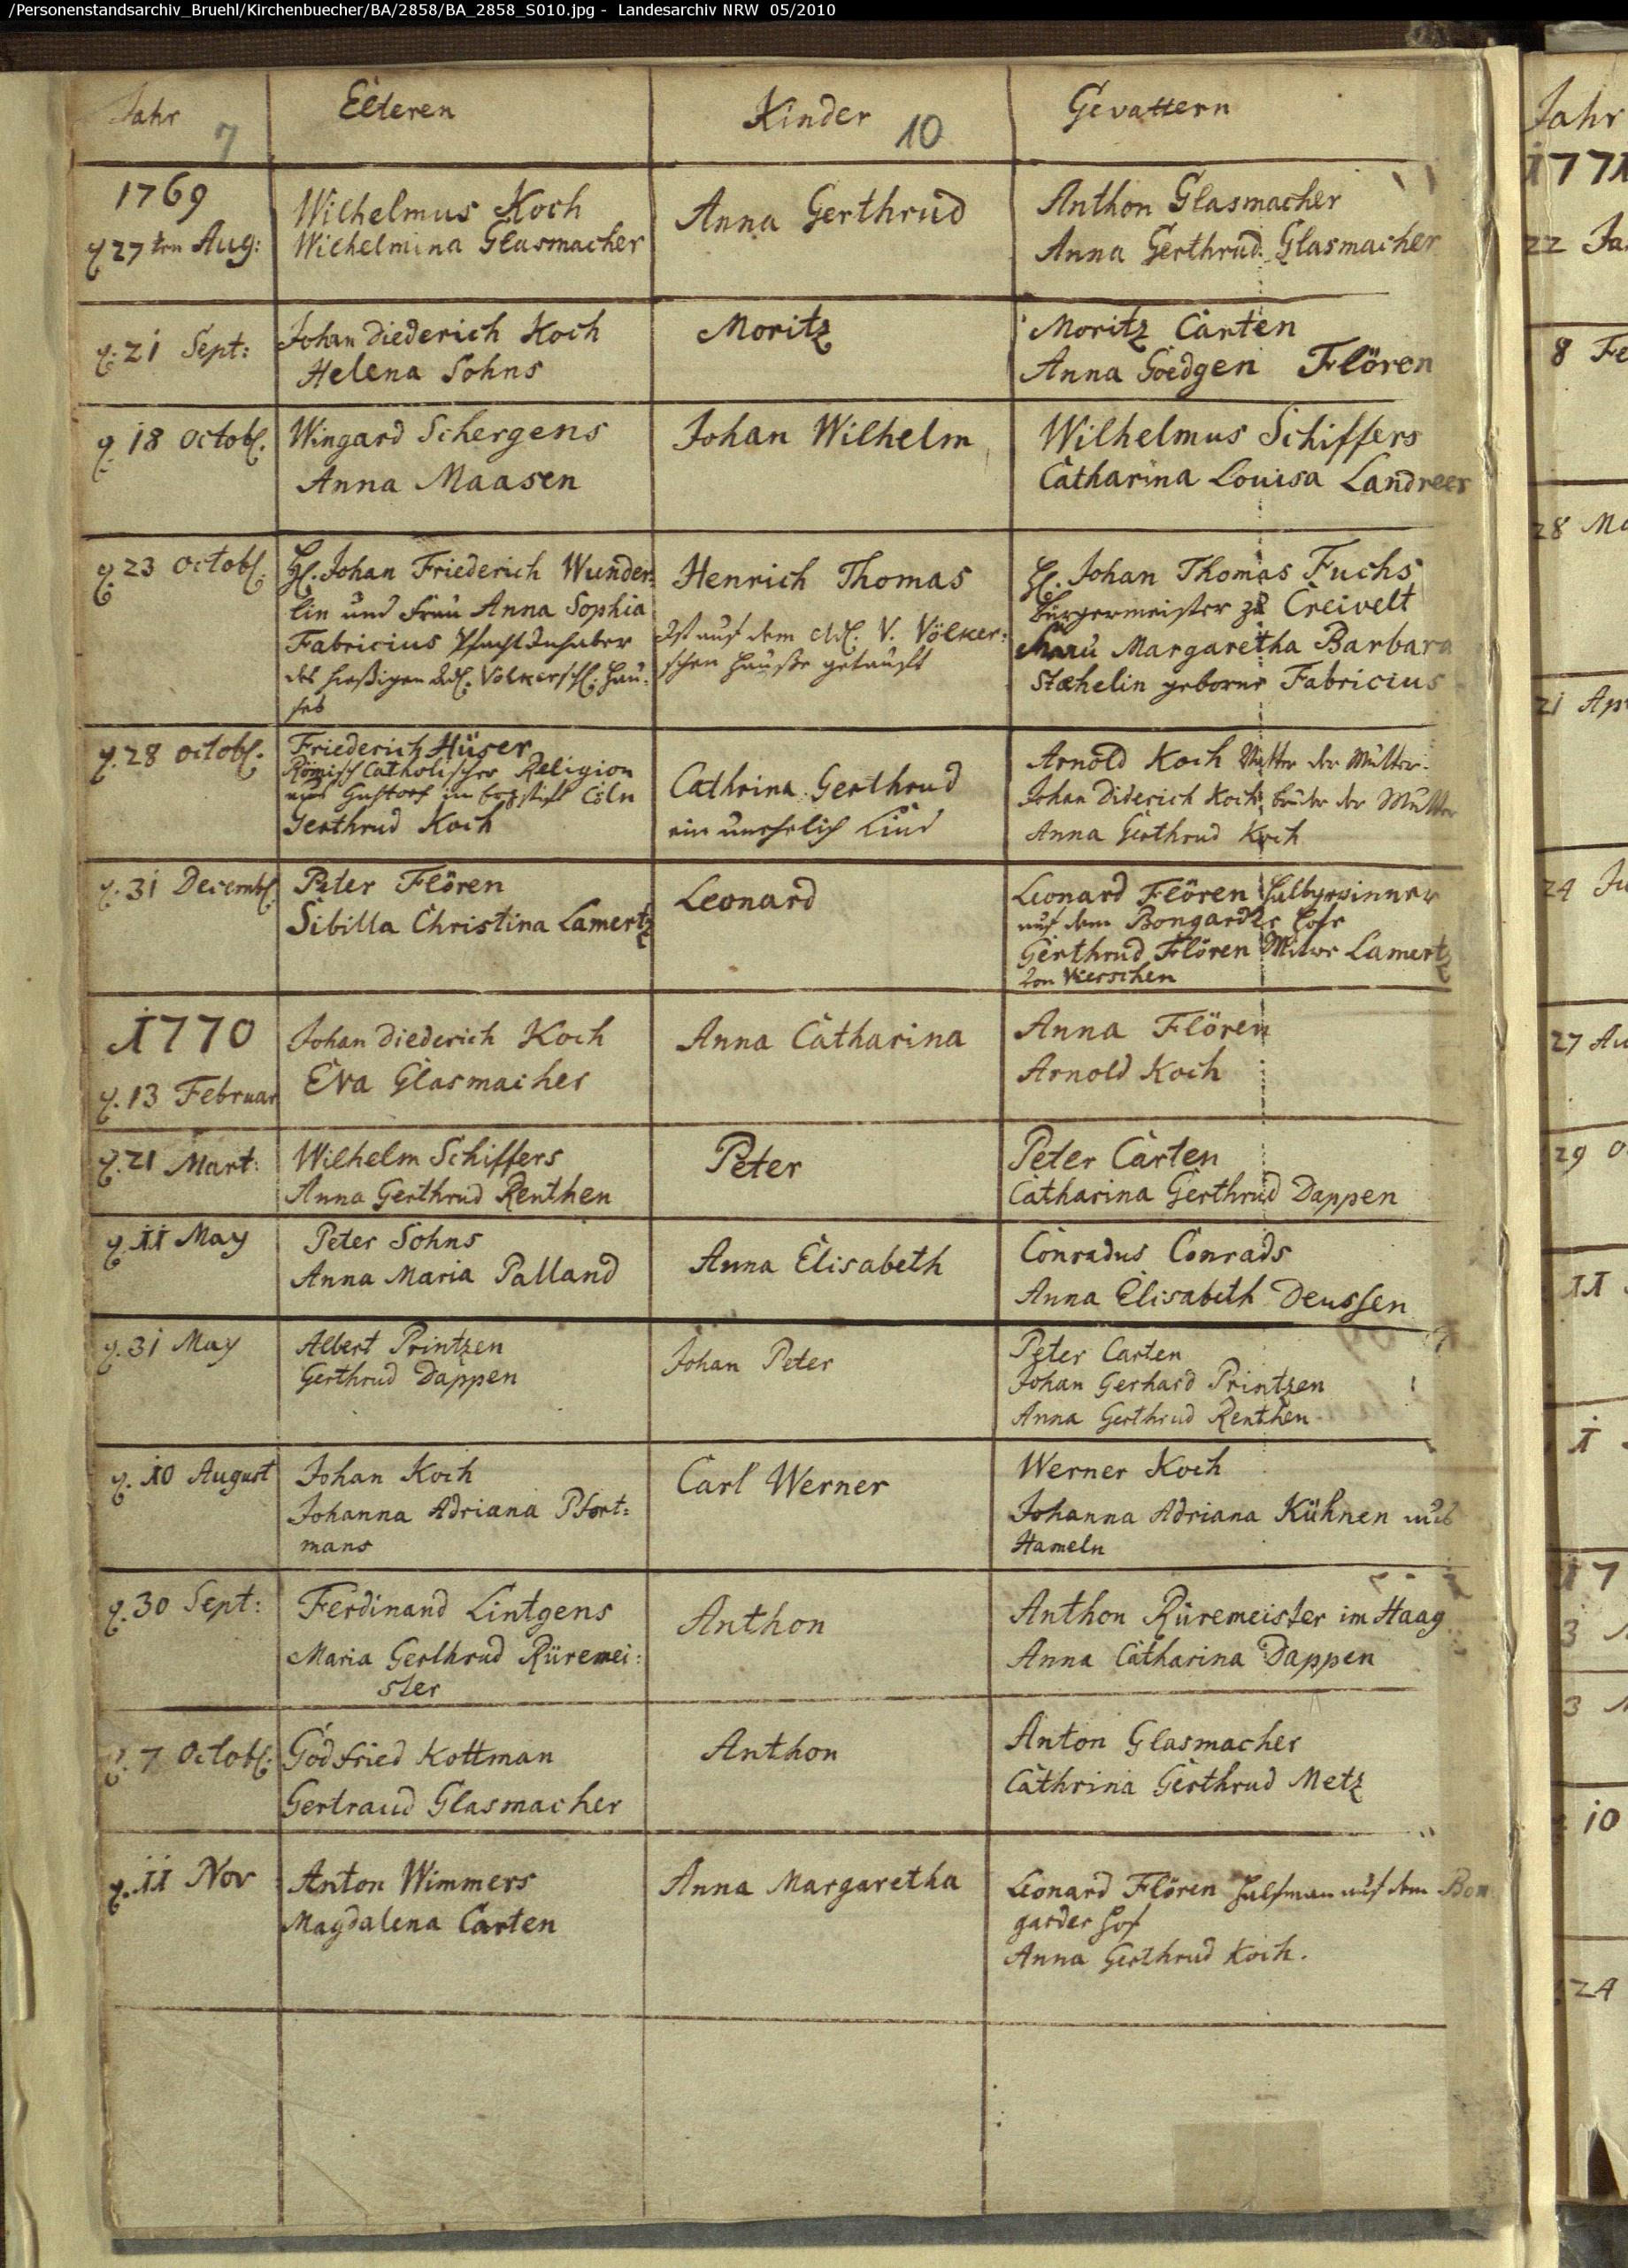 /Personenstandsarchiv_Bruehl/Kirchenbuecher/BA/2858/BA_2858_S010.jpg - Landesarchiv NRW 05/2010
Jahr
7
Elteren
Kinder
10
Gevattern
1769
d 27ten Aug:
Wilhelmus Koch
Wilhelmina Glasmacher
Anna Gerthrud
Anthon Glasmacher
Anna Gerthrud Glasmacher
d. 21 Sept:
Johan Diederich Koch
Helena Sohns
Moritz
Moritz Carten
Anna Goedgen Flören
d. 18 Octob.
Wingard Schergens
Anna Maasen
Johan Wilhelm
Wilhelmus Schiffers
Catharina Louisa Landreer
d. 23 Octob.
H. Johan Friederich Wunder-
lin und Frau Anna Sophia
Fabricius Pfacht Inhaber
des hießigen Adl. Völkersch. Hau-
ses
Henrich Thomas
Ist auf dem Adl. V. Völker-
schen Hauße getauft
H. Johan Thomas Fuchs
Bürgermeister zu Creivelt
Frau Margaretha Barbara
Stæhelin geborne Fabricius
d. 28 Octob.
Friederich Hüser
Römisch Catholischer Religion
aus Gustorf im Erzstift Cöln
Gerthrud Koch
Cathrina Gerthrud
ein unehelich Kind
Arnold Koch Vatter der Mutter.
Johan Diderich Koch Bruder der Mutter
Anna Gerthrud Koch
d. 31 Decemb.
Peter Flören
Sibilla Christina Lamertz
Leonard
Leonard Flören Halbgewinner
auf dem Bongarder Hofe
Gerthrud Flören Witwe Lamertz
von Vierschen
1770
d. 13 Februar
Johan Diederich Koch
Eva Glasmacher
Anna Catharina
Anna Flören
Arnold Koch
d. 21 Mart:
Wilhelm Schiffers
Anna Gerthrud Renthen
Peter
Peter Carten
Catharina Gerthrud Dappen
d. 11 May
Peter Sohns
Anna Maria Palland
Anna Elisabeth
Conradus Conrads
Anna Elisabeth Deussen
d. 31 May
Albert Printzen
Gerthrud Dappen
Johan Peter
Peter Carten
Johan Gerhard Printzen
Anna Gerthrud Renthen
d. 10 August
Johan Koch
Johanna Adriana Pfort-
mans
Carl Werner
Werner Koch
Johanna Adriana Kühnen aus
Hameln
d. 30 Sept:
Ferdinand Lintgens
Maria Gerthrud Rüremei-
ster
Anthon
Anthon Rüremeister im Haag
Anna Catharina Dappen
d. 7 Octob.
Godfried Kottman
Gertraud Glasmacher
Anthon
Anton Glasmacher
Cathrina Gerthrud Metz
d. 11 Nov
Anton Wimmers
Magdalena Carten
Anna Margaretha
Leonard Flören Halfman auf dem Bon
garder Hof
Anna Gerthrud Koch.
Jahr
1771
22 Ja
8 Fe
28 Ma
21 Apr
24 Ju
27 Au
29 O
11
1
17
3
3
10
24